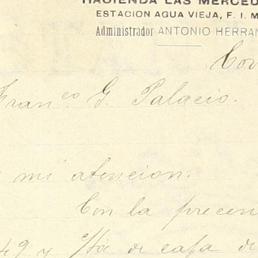 HACIENDA LAS MERCE
ESTACION AGUA VIEJA, F. I. M
Administrador ANTONIO HERRAN
Fran.co G. Palacio.
mi atencion.
Con la precen
49 y de cafa de